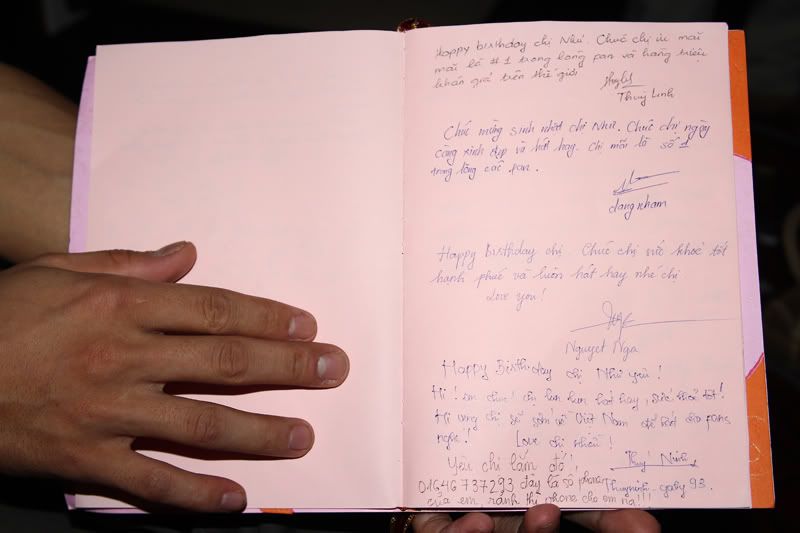 Happy birthday chị Như. Chúc chị iu mãi
mãi là #1 trong lòng fan và hàng triệu
khán giả trên thế giới
Thuỳ Linh
Chúc mừng sinh nhật chị Như. Chúc chị ngày
càng xinh đẹp và hát hay. Chị mãi là số 1
trong lòng các fan.
dangnham
Happy Birthday chị. Chúc chị sức khoẻ tốt
hạnh phúc và luôn hát hay nhé chị
Love you!
Nguyet Nga
Happy Birthday chị Như yêu!
Hi! em chúc chị lun lun hát hay, sức khoẻ tốt!
Hi vọng chị sẽ sớm về Việt Nam để hát cho fans
nghe! Love chị nhiều!
Yêu chị lắm đó! Thuý Ninh
01646737293 đây là số phone Thuyninh_gaby 93.
của em, rảnh thì phone cho em na!!!